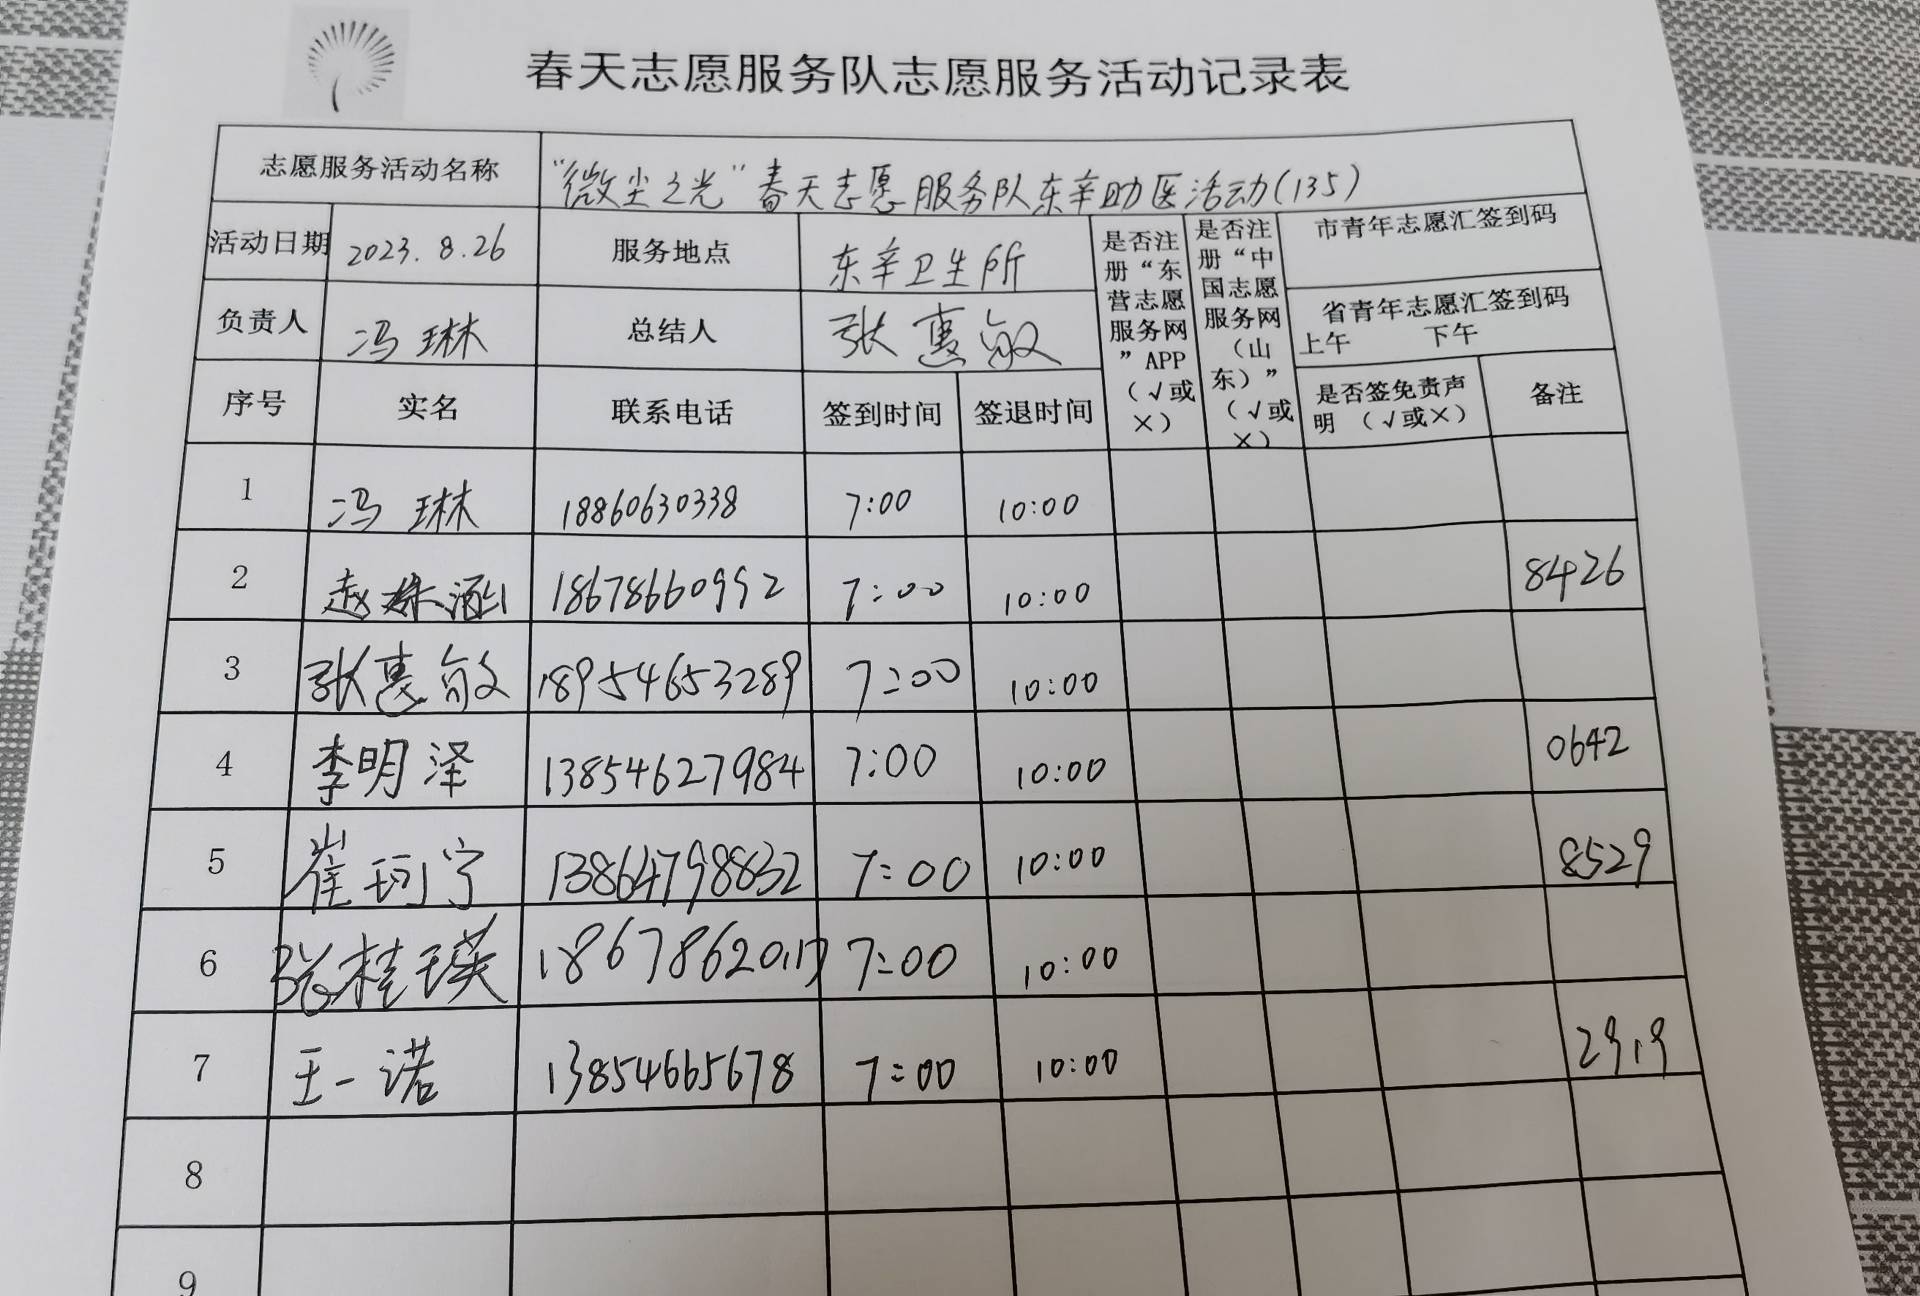 春天志愿服务队志愿服务活动记录表
志愿服务活动名称 “微尘之光”春天志愿服务队东辛助医活动(135)
活动日期 2023.8.26 服务地点 东辛卫生所 是否注册“东营志愿服务网”APP（√或×） 是否注册“中国志愿服务网（山东）”（√或×） 市青年志愿汇签到码
负责人 冯琳 总结人 张惠敏 省青年志愿汇签到码
上午 下午
序号 实名 联系电话 签到时间 签退时间 是否签免责声明（√或×） 备注
1 冯琳 18860630338 7:00 10:00
2 赵姝涵 18678660992 7:00 10:00 8426
3 张惠敏 18954653289 7:00 10:00
4 李明泽 13854627984 7:00 10:00 0642
5 崔珂宁 13864798832 7:00 10:00 8529
6 张桂瑛 7:00 10:00
7 王一诺 13854665678 7:00 10:00 2919
8
9